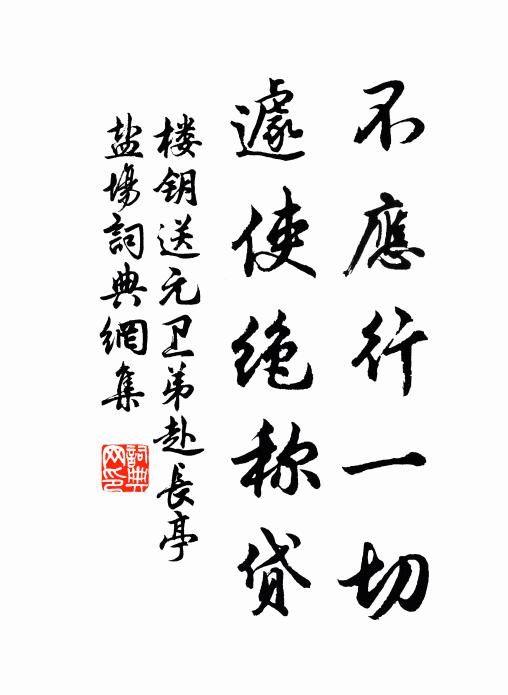 不應行一切
遽使绝称貸
楼钥送元卫弟赴長亭
盐場詞典網集
詞典网印